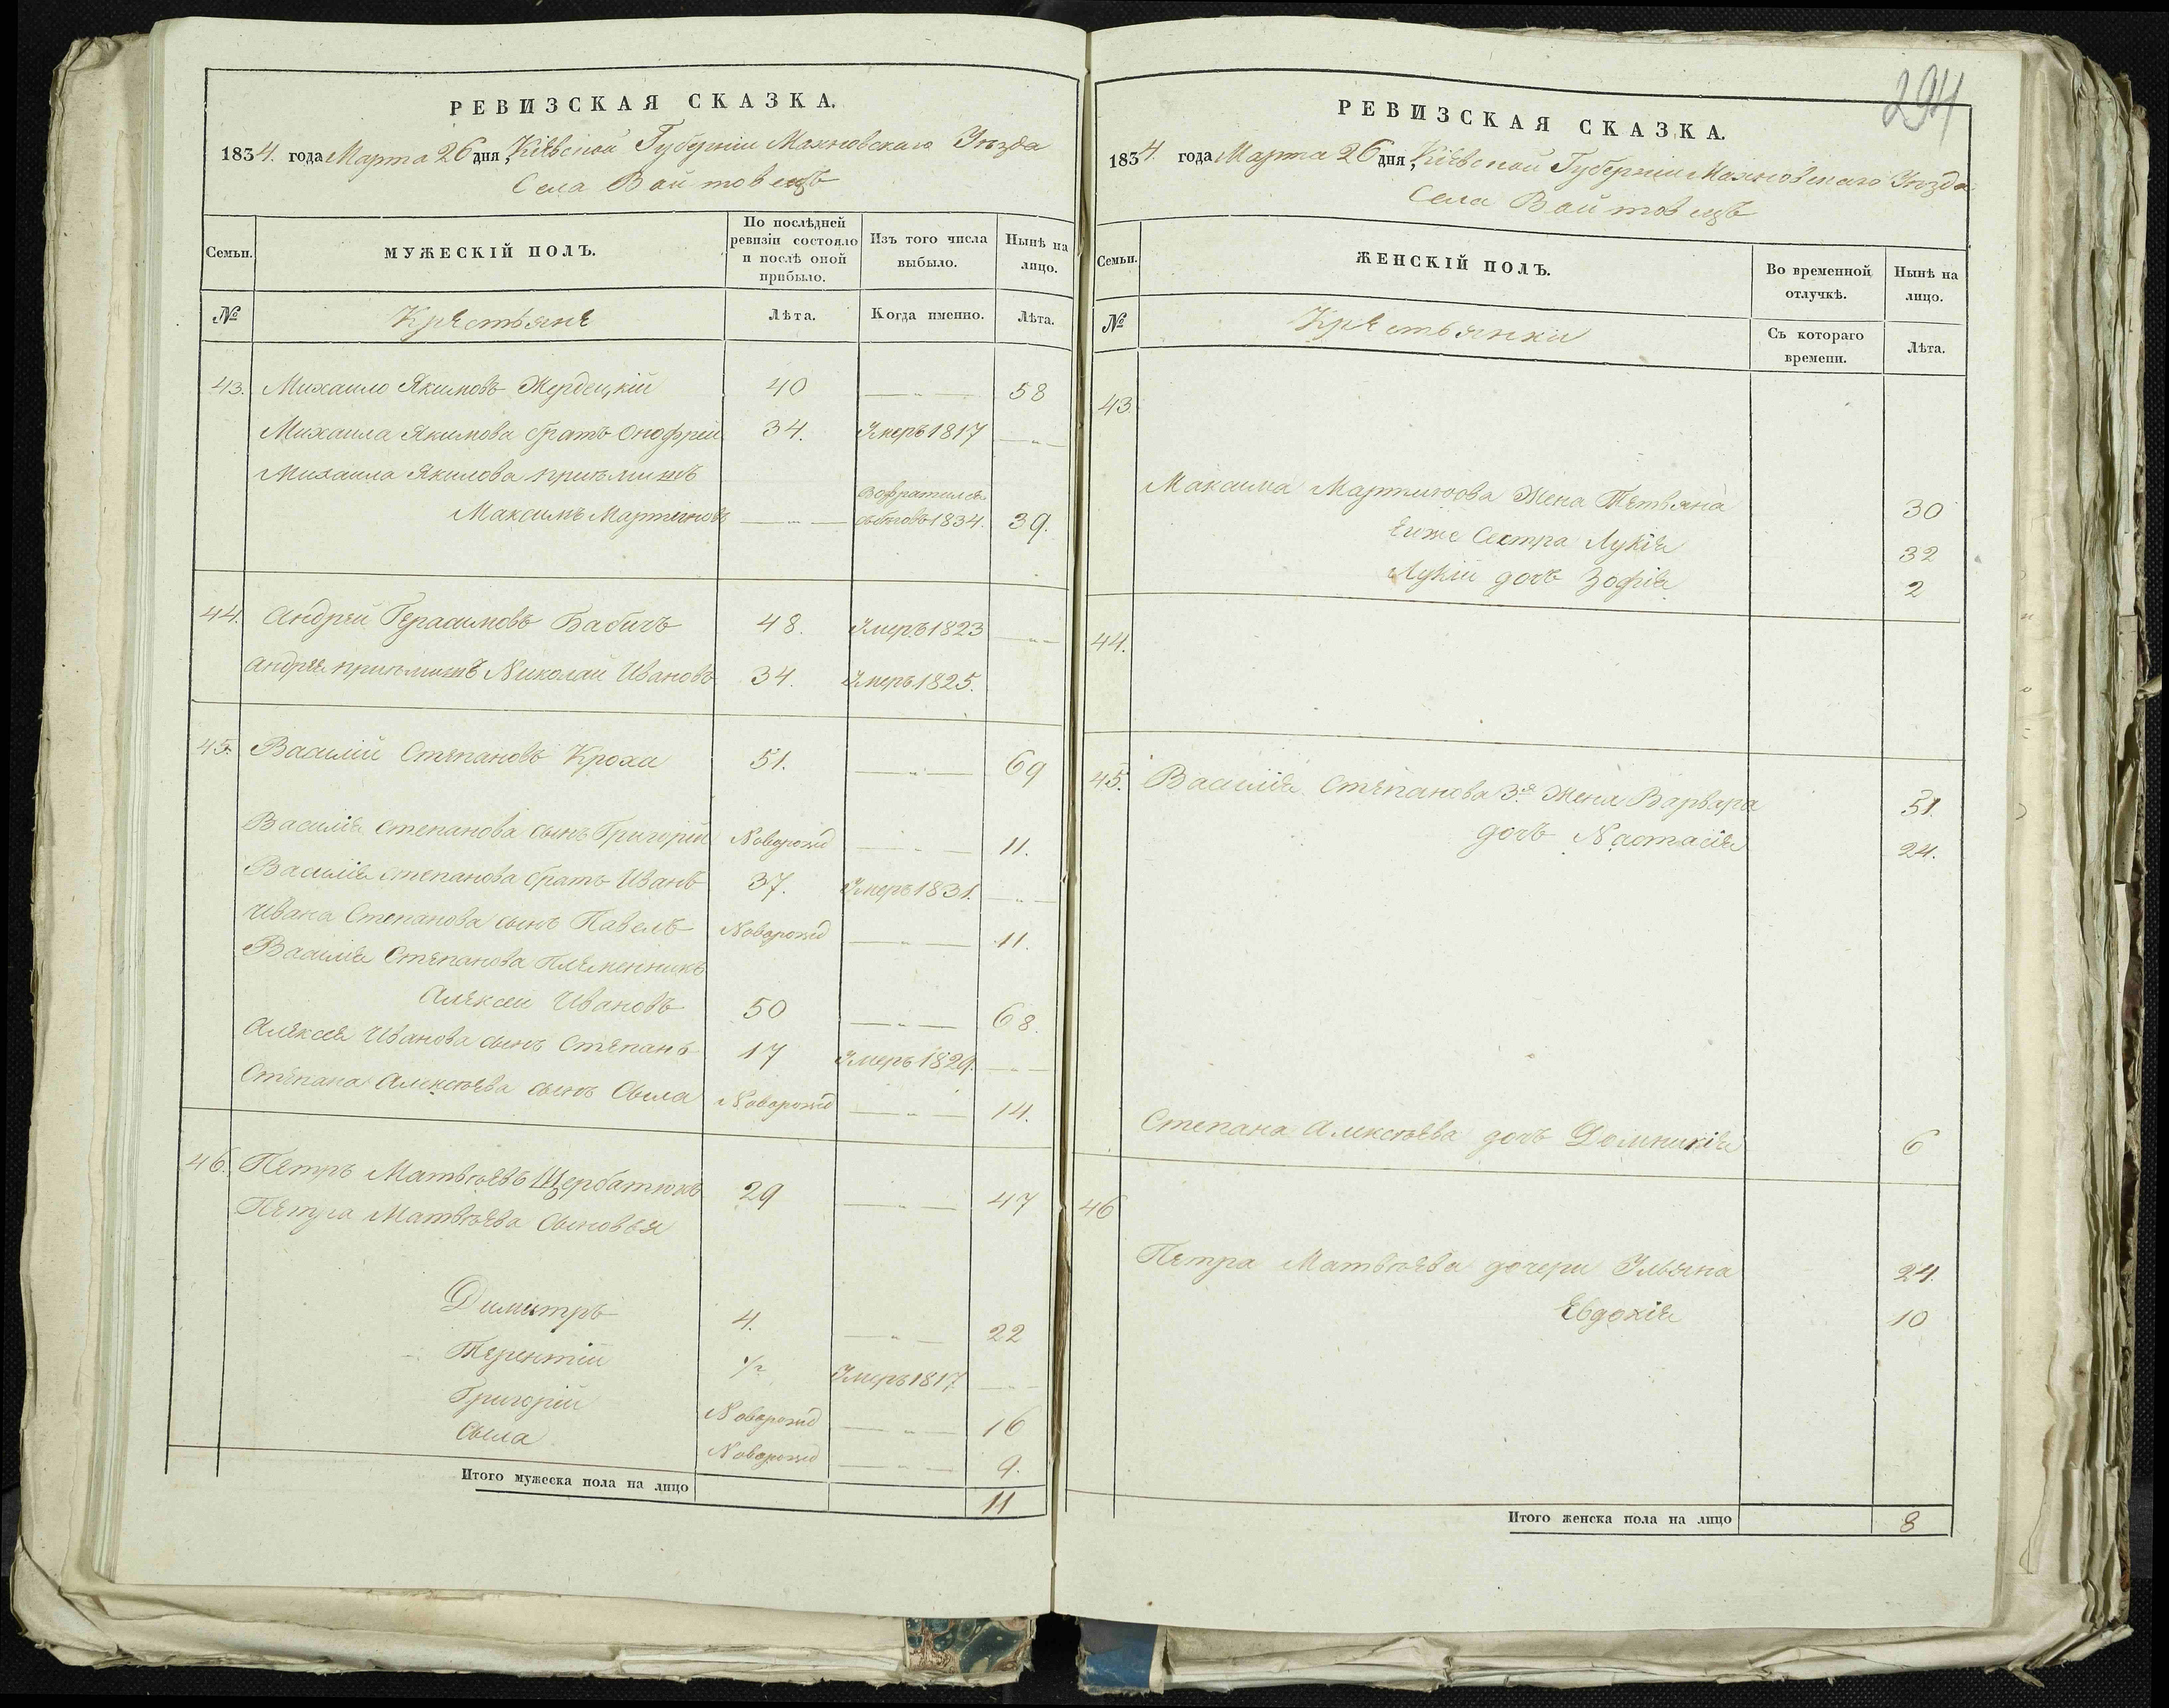 РЕВИЗСКАЯ СКАЗКА.
1834. года Марта 26 дня, Кіевской Губерніи Махновскаго Уѣзда
Села Войтовецъ
Семьи.
МУЖЕСКІЙ ПОЛЪ.
По послѣдней ревизіи состояло и послѣ оной прибыло.
Изъ того числа выбыло.
Нынѣ на лицо.
№
Крестьяне
Лѣта.
Когда именно.
Лѣта.
43. Михаило Якимовъ Жердецкій 40 —„— 58
Михаила Якимова братъ Онофрей 34. Умеръ 1817 —„—
Михаила Якимова пріьмишъ
Максимъ Мартиновъ —„— 1834. 39.
44. Андрей Герасимовъ Бабичъ 48. Умеръ 1823 —„—
Андрея пріьмишъ Николай Ивановъ 34. Умеръ 1825.
45. Василій Степановъ Кроха 51. —„— 69
Василія Степанова сынъ Григорій Новорожд —„— 11.
Василія Степанова братъ Иванъ 37. Умеръ 1831. —„—
Ивана Степанова сынъ Павелъ Новорожд —„— 11.
Василія Степанова Племенникъ
Алексей Ивановъ 50 —„— 68.
Алексея Иванова сынъ Степанъ 17 Умеръ 1829. —„—
Степана Алексѣева сынъ Сыла Новорожд —„— 14.
46. Петръ Матвѣевъ Щербатюкъ 29 —„— 47
Петра Матвѣева Сыновья
Димитръ 4. —„— 22
Терентій 1/2 Умеръ 1817 —„—
Григорій Новорожд —„— 16
Сыла Новорожд —„— 9.
Итого мужеска пола на лицо 11
294
РЕВИЗСКАЯ СКАЗКА.
1834. года Марта 26 дня, Кіевской Губерніи Махновскаго Уѣзда
Села Войтовецъ
Семьи.
ЖЕНСКІЙ ПОЛЪ.
Во временной отлучкѣ.
Нынѣ на лицо.
№
Крестьянки
Съ котораго времени.
Лѣта.
43.
Максима Мартинова Жена Тетьяна 30
Еиже Сестра Лукія 32
Лукіи дочь Зофія 2
44.
45. Василія Степанова 3я Жена Варвара 51.
дочь Настасія 24.
Степана Алексѣева дочь Домникія 6
46
Петра Матвѣева дочери Ульяна 24.
Евдокія 10
Итого женска пола на лицо 8